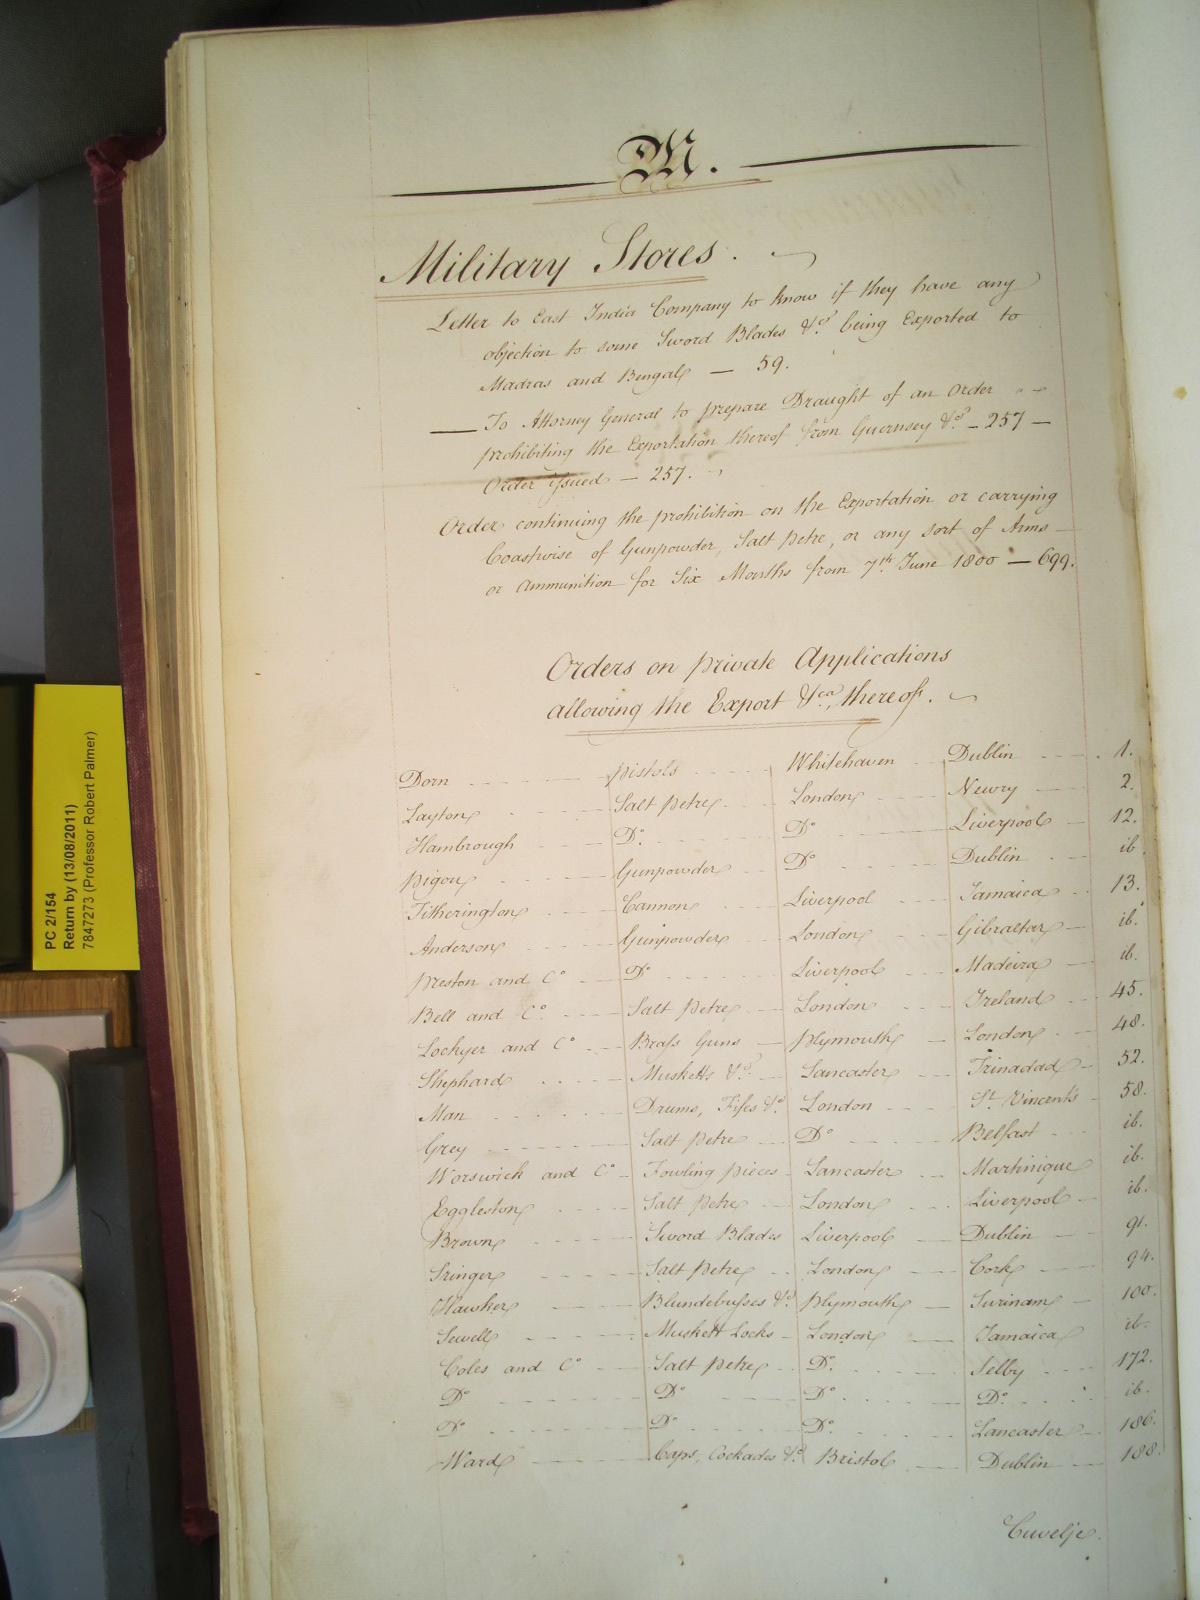 M.
Military Stores.
Letter to East India Company to know if they have any
objection to some Sword Blades &c. being Exported to
Madras and Bengal — 59.
— To Attorney General to prepare Draught of an Order
prohibiting the Exportation thereof from Guernsey &c. — 257 —
Order issued — 257.
Order continuing the prohibition on the Exportation or carrying
Coastwise of Gunpowder, Salt Petre, or any sort of Arms
or Ammunition for Six Months from 7th June 1800 — 699.
Orders on private Applications
allowing the Export &ca. thereof.
Dorn Pistols Whitehaven Dublin 1.
Layton Salt Petre London Newry 2.
Hambrough Do. Do Liverpool 12.
Pigou Gunpowder Do Dublin ib.
Titherington Cannon Liverpool Jamaica 13.
Anderson Gunpowder London Gibraltar ib.
Preston and Co Do Liverpool Madeira ib.
Bell and Co. Salt Petre London Ireland 45.
Lockyer and Co Brass Guns Plymouth London 48.
Shephard Musketts &c. Lancaster Trinadad 52.
Man Drums, Fifes &c London St. Vincents 58.
Grey Salt Petre Do Belfast ib.
Worswick and Co Fowling Pieces Lancaster Martinique ib.
Eggleston Salt Petre London Liverpool ib.
Brown Sword Blades Liverpool Dublin 91.
Salt Petre London Cork 94.
Hawker Blundebusses &c Plymouth Surinam 100.
Sewell Muskett Locks London Jamaica ib.
Coles and Co Salt Petre Do. Selby 172.
Do Do Do Do. ib.
Do Do Do. Lancaster 186.
Ward Caps, Cockades &c Bristol Dublin 188.
Cuvelje.
PC 2/154
Return by (13/08/2011)
7847273 (Professor Robert Palmer)